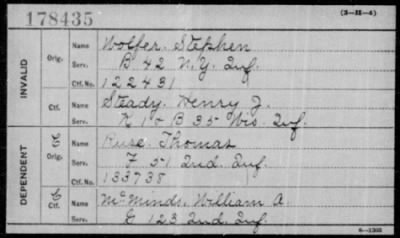 178435
(3-II-4)
INVALID
Orig.
Name Wolfer, Stephen
Serv. B 42 N.Y. Inf.
Ctf. No. 122431
Ctf.
Name Steady, Henry J.
Serv. K 1 & B 35 Wis. Inf.
DEPENDENT
C
Orig.
Name Ruse, Thomas
Serv. F 51 Ind. Inf.
Ctf. No. 133738
C
Ctf.
Name McMinds, William A.
Serv. G 123 Ind. Inf.